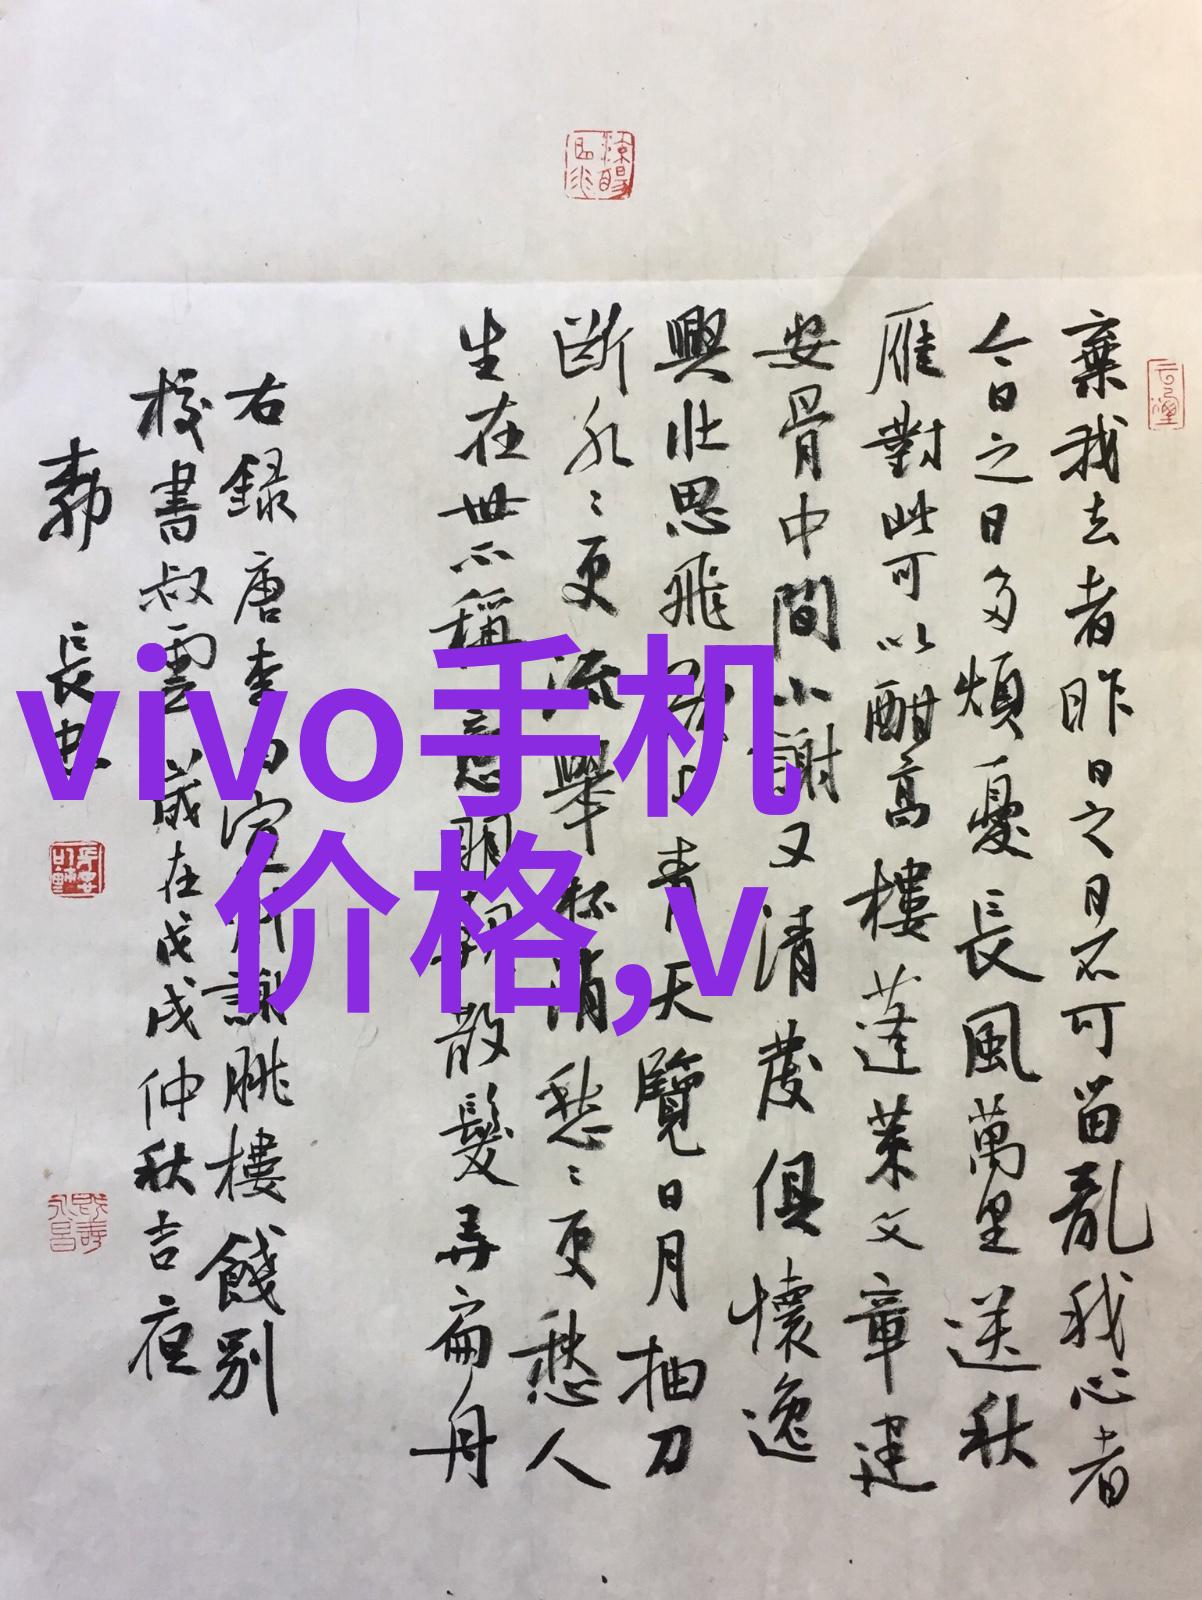 棄我去者昨日之日不可留亂我心者
今日之日多煩憂長風萬里送秋
雁對此可以酣高樓蓬萊文章建
安骨中間小謝又清發俱懷逸
興壯思飛欲上青天覽日月抽刀
斷水〻更流舉杯消愁〻更愁人
生在世不稱意明朝散髮弄扁舟
右録唐李白宣州謝朓樓餞別
校書叔雲歲在戊戌仲秋吉夜
長
vivo手机
价格,v